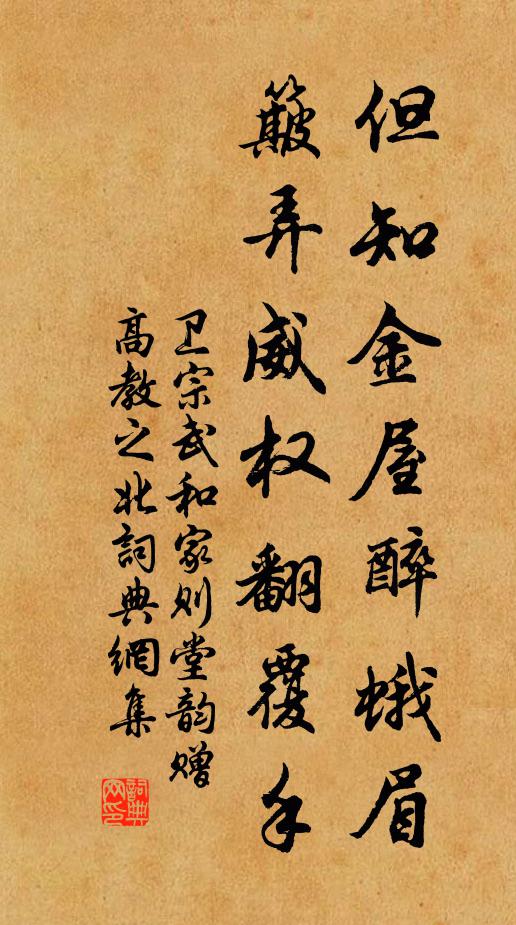 但知金屋醉蛾眉
簸弄威权翻覆手
卫宗武和家则堂韵赠
高教之北詞典網集
詞典
网印